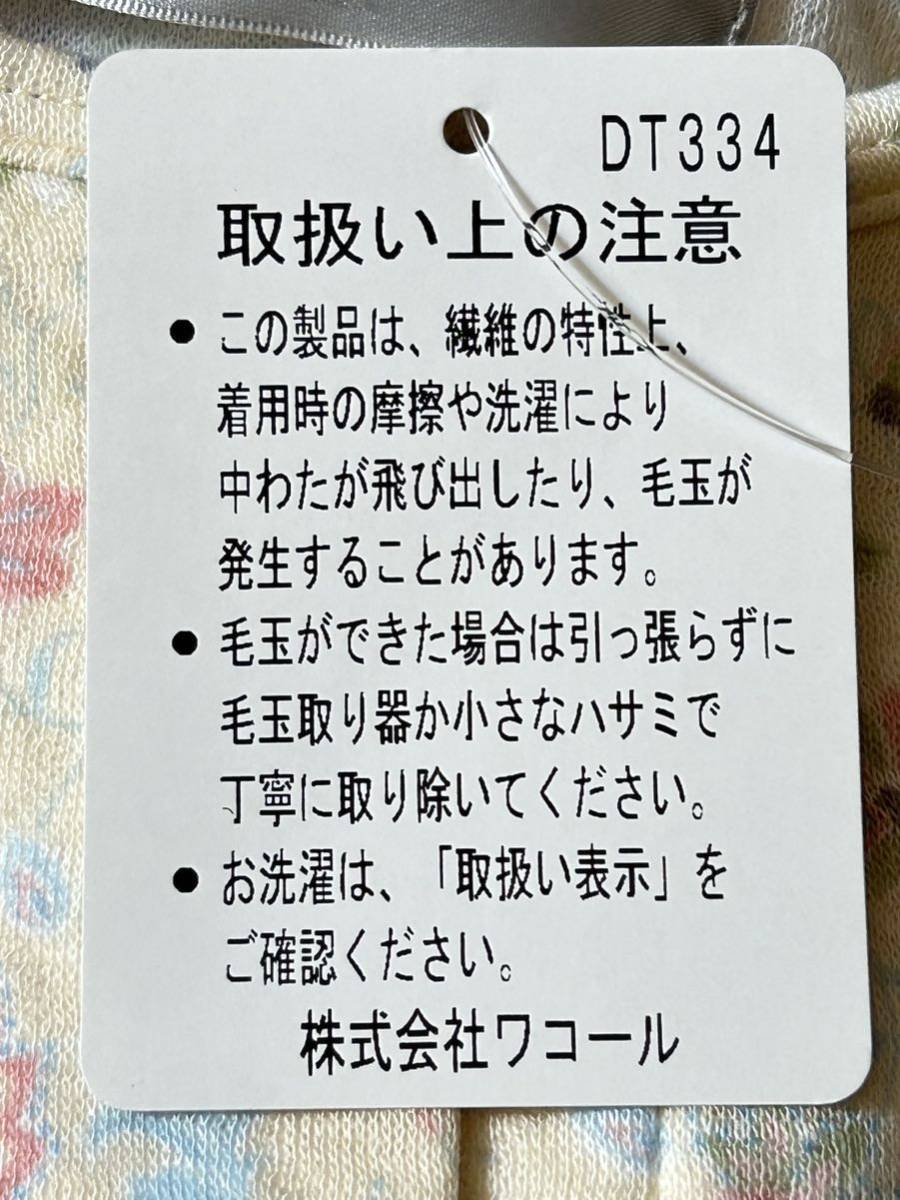 DT334
取扱い上の注意
● この製品は、繊維の特性上、
着用時の摩擦や洗濯により
中わたが飛び出したり、毛玉が
発生することがあります。
● 毛玉ができた場合は引っ張らずに
毛玉取り器か小さなハサミで
丁寧に取り除いてください。
● お洗濯は、「取扱い表示」を
ご確認ください。
株式会社ワコール